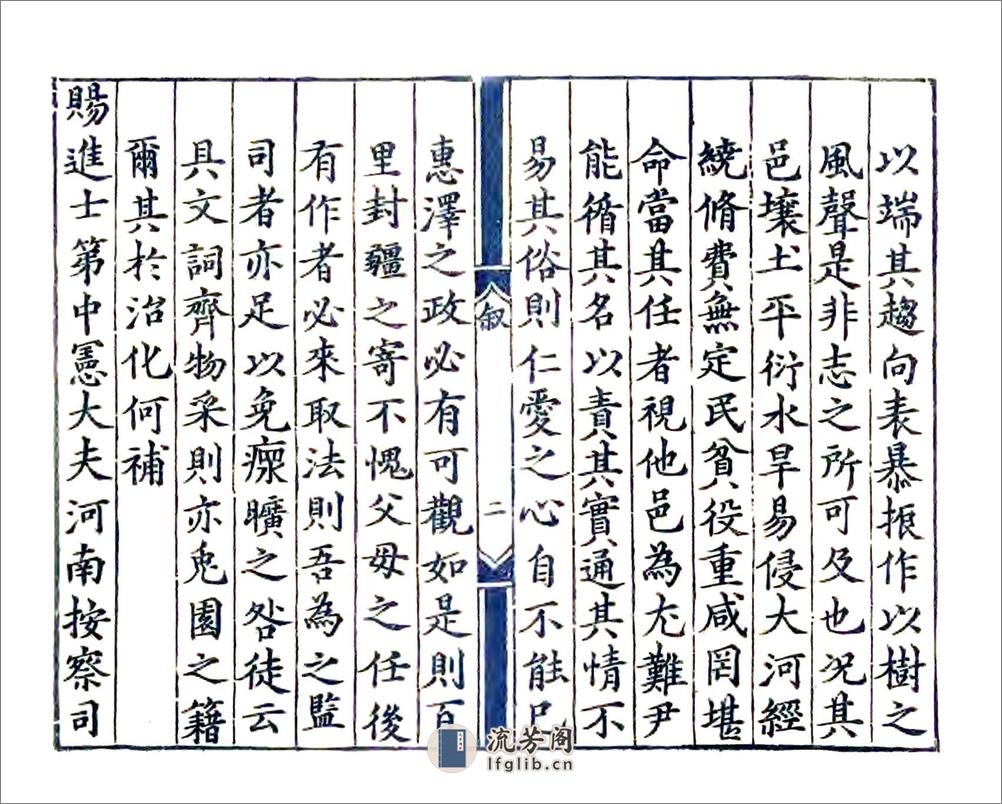 以端其趨向表暴振作以樹之
風聲是非志之所可及也况其
邑壤土平衍水旱易侵大河經
繞脩費無定民貧役重咸罔堪
命當其任者視他邑為尤難尹
能循其名以責其實通其情不
易其俗則仁愛之心自不能已
叙
二
惠澤之政必有可觀如是則百
里封疆之寄不愧父母之任後
有作者必來取法則吾為之監
司者亦足以免瘝曠之咎徒云
具文詞齊物采則亦兎園之籍
爾其於治化何補
賜進士第中憲大夫河南按察司
流芳阁
lfglib.cn